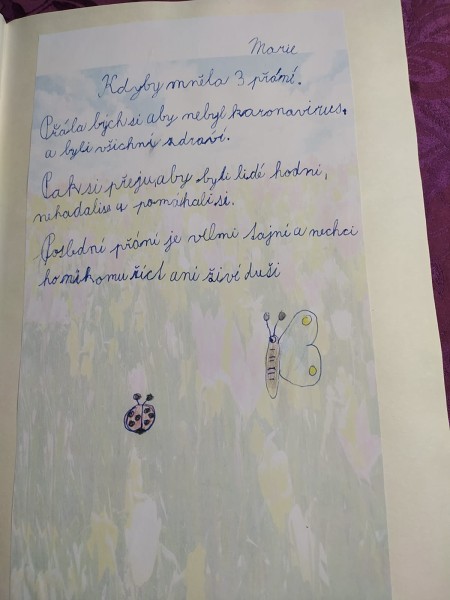 Marie
Kdyby mněla 3 přání.
Přála bých si aby nebyl koronavirus,
a byli všichni zdraví.
Pak si přeju, aby byli lidé hodní,
nehadali se a pomáhali si.
Poslední přání je velmi tajní a nechci
ho nikomu říct ani živé duši